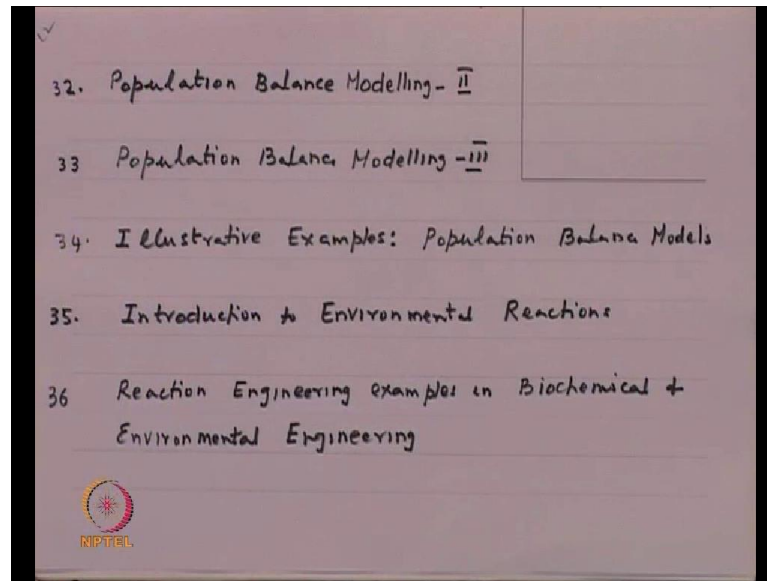 32. Population Balance Modelling - II
33 Population Balance Modelling - III
34. Illustrative Examples: Population Balance Models
35. Introduction to Environmental Reactions
36 Reaction Engineering examples in Biochemical &
Environmental Engineering
NPTEL